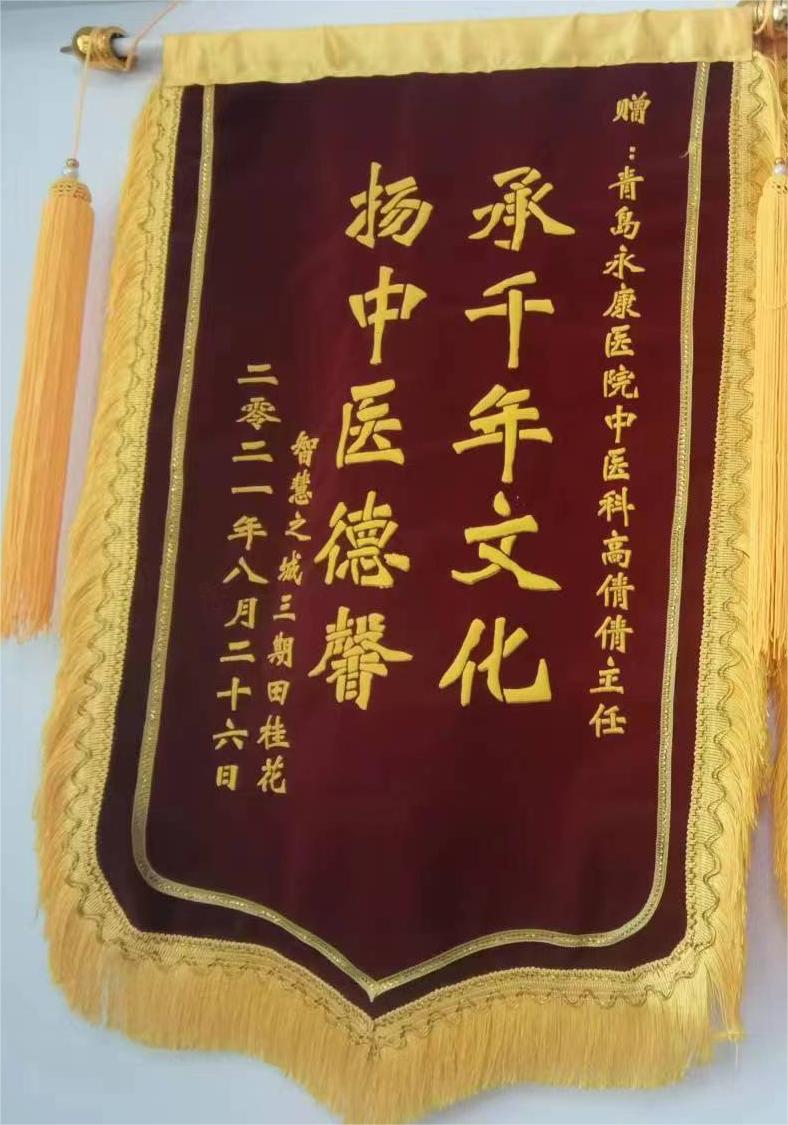 赠：青岛永康医院中医科高倩倩主任
承千年文化
扬中医德馨
智慧之城三期田桂花
二零二一年八月二十六日